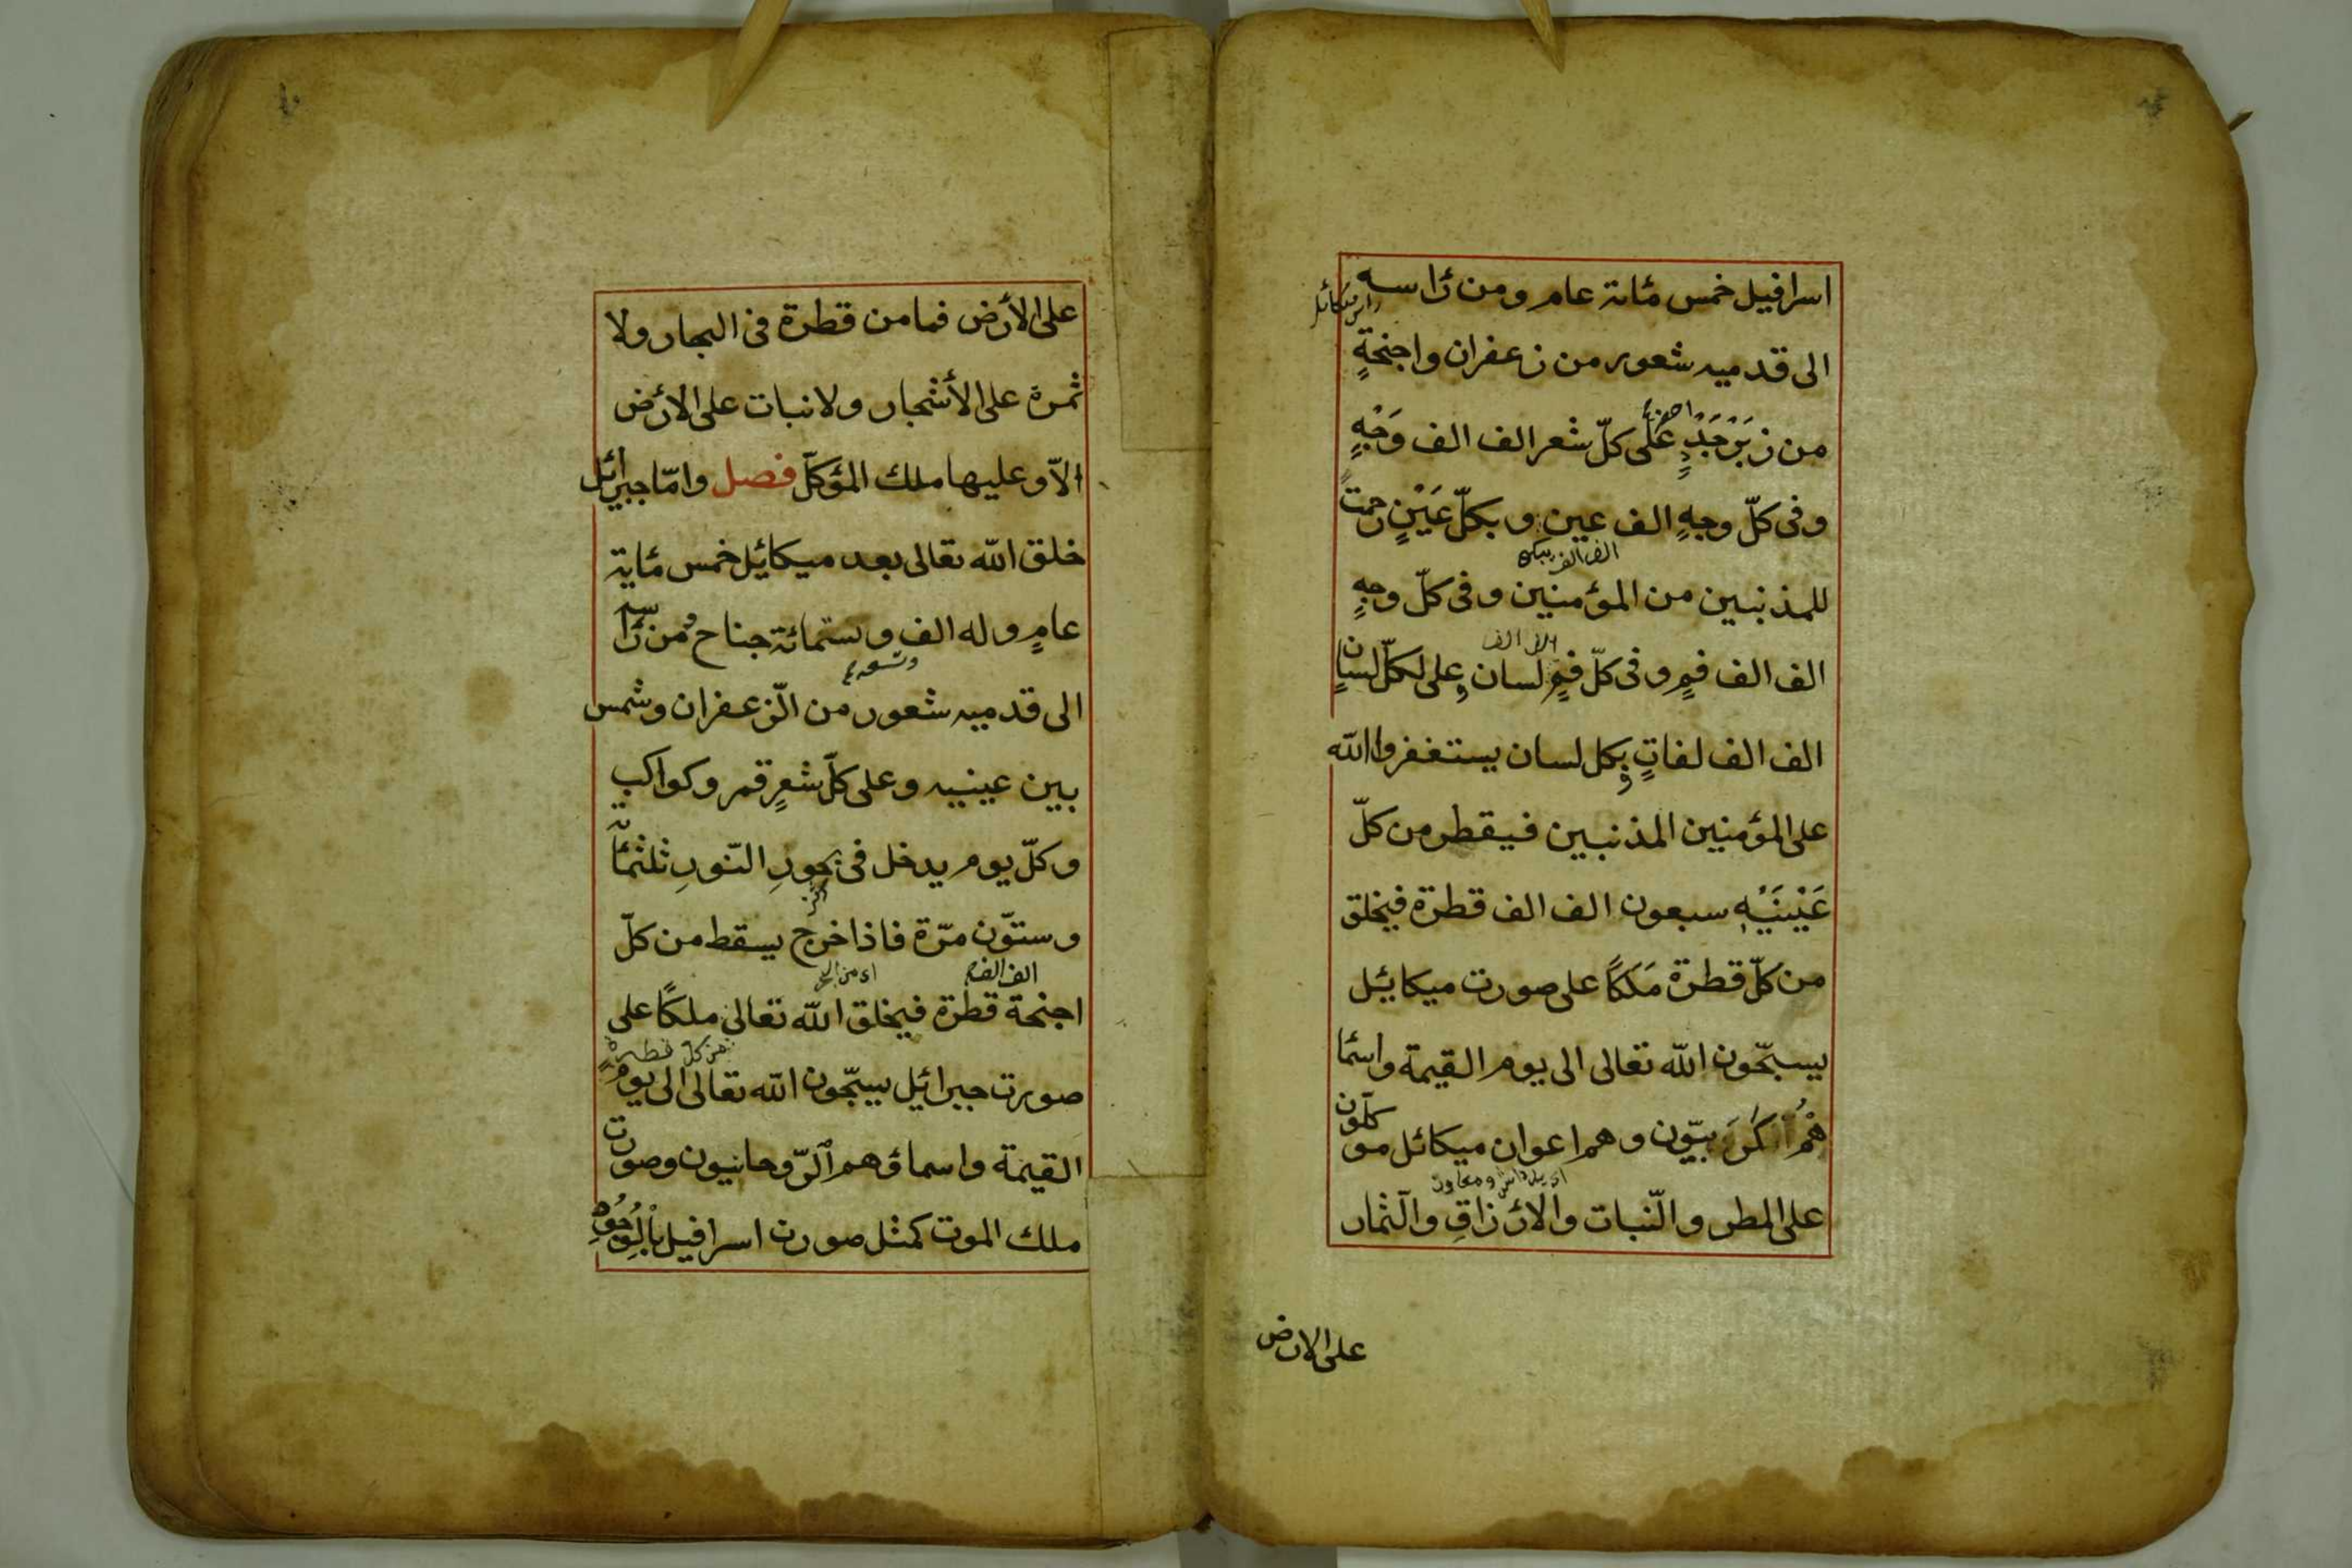 اسرافيل خمس مائة عام ومن رأسه
رأس ميكائيل
الى قدميه شعور من زعفران واجنحةٍ
من زَبَرْجَدٍ على كلّ شعر الف الف وَجْهٍ
وفى كلّ وجهٍ الف عين وبكلّ عَيْنٍ رحمت
الف الف يبكى
للمذنبين من المؤمنين وفى كلّ وجهٍ
الف الف فمٍ وفى كلّ فمٍ لسان وعلى لكلّ لسانٍ
الف الف
الف الف لغاتٍ وبكل لسان يستغفروا الله
على المؤمنين المذنبين فيقطر من كلّ
عَيْنَيْهِ سبعون الف الف قطرة فيخلق
من كلّ قطرة مَلَكًا على صورت ميكايئل
يسبّحون الله تعالى الى يوم القيمة واسمأ
هُمْ كَرَ بيّون وهم اعوان ميكائل موكلّون
على المطر والنّبات والارْزاقِ والثمار
على الارض
على الأرْض فما من قطرة فى البحار ولا
ثمرة على الأشجار ولا نبات على الارْض
الاّ وعليها ملك المؤكلّ فصل وامّا جبرائل
خلق الله تعالى بعد ميكايئل خمس مائة
عامٍ وله الف وستمائة جناح ومن رأسه
الى قدميه شعور من الزّعفران وشمس
بين عينيه وعلى كلّ شعرٍ قمر وكواكب
وكلّ يوم يدخل فى بحورِ النّورِ ثلثمأة
وستّون مرّة فاذا خرج يسقط من كلّ
الف الف
اجنحة قطرة فيخلق الله تعالى ملكًا على
من كل قطرة
صورت جبرائيل يسبّحون الله تعالى الى يوم
القيمة واسماؤهم الرّوحانيون وصورت
ملك الموت كمثل صورت اسرافيل بالوُجُوهِ